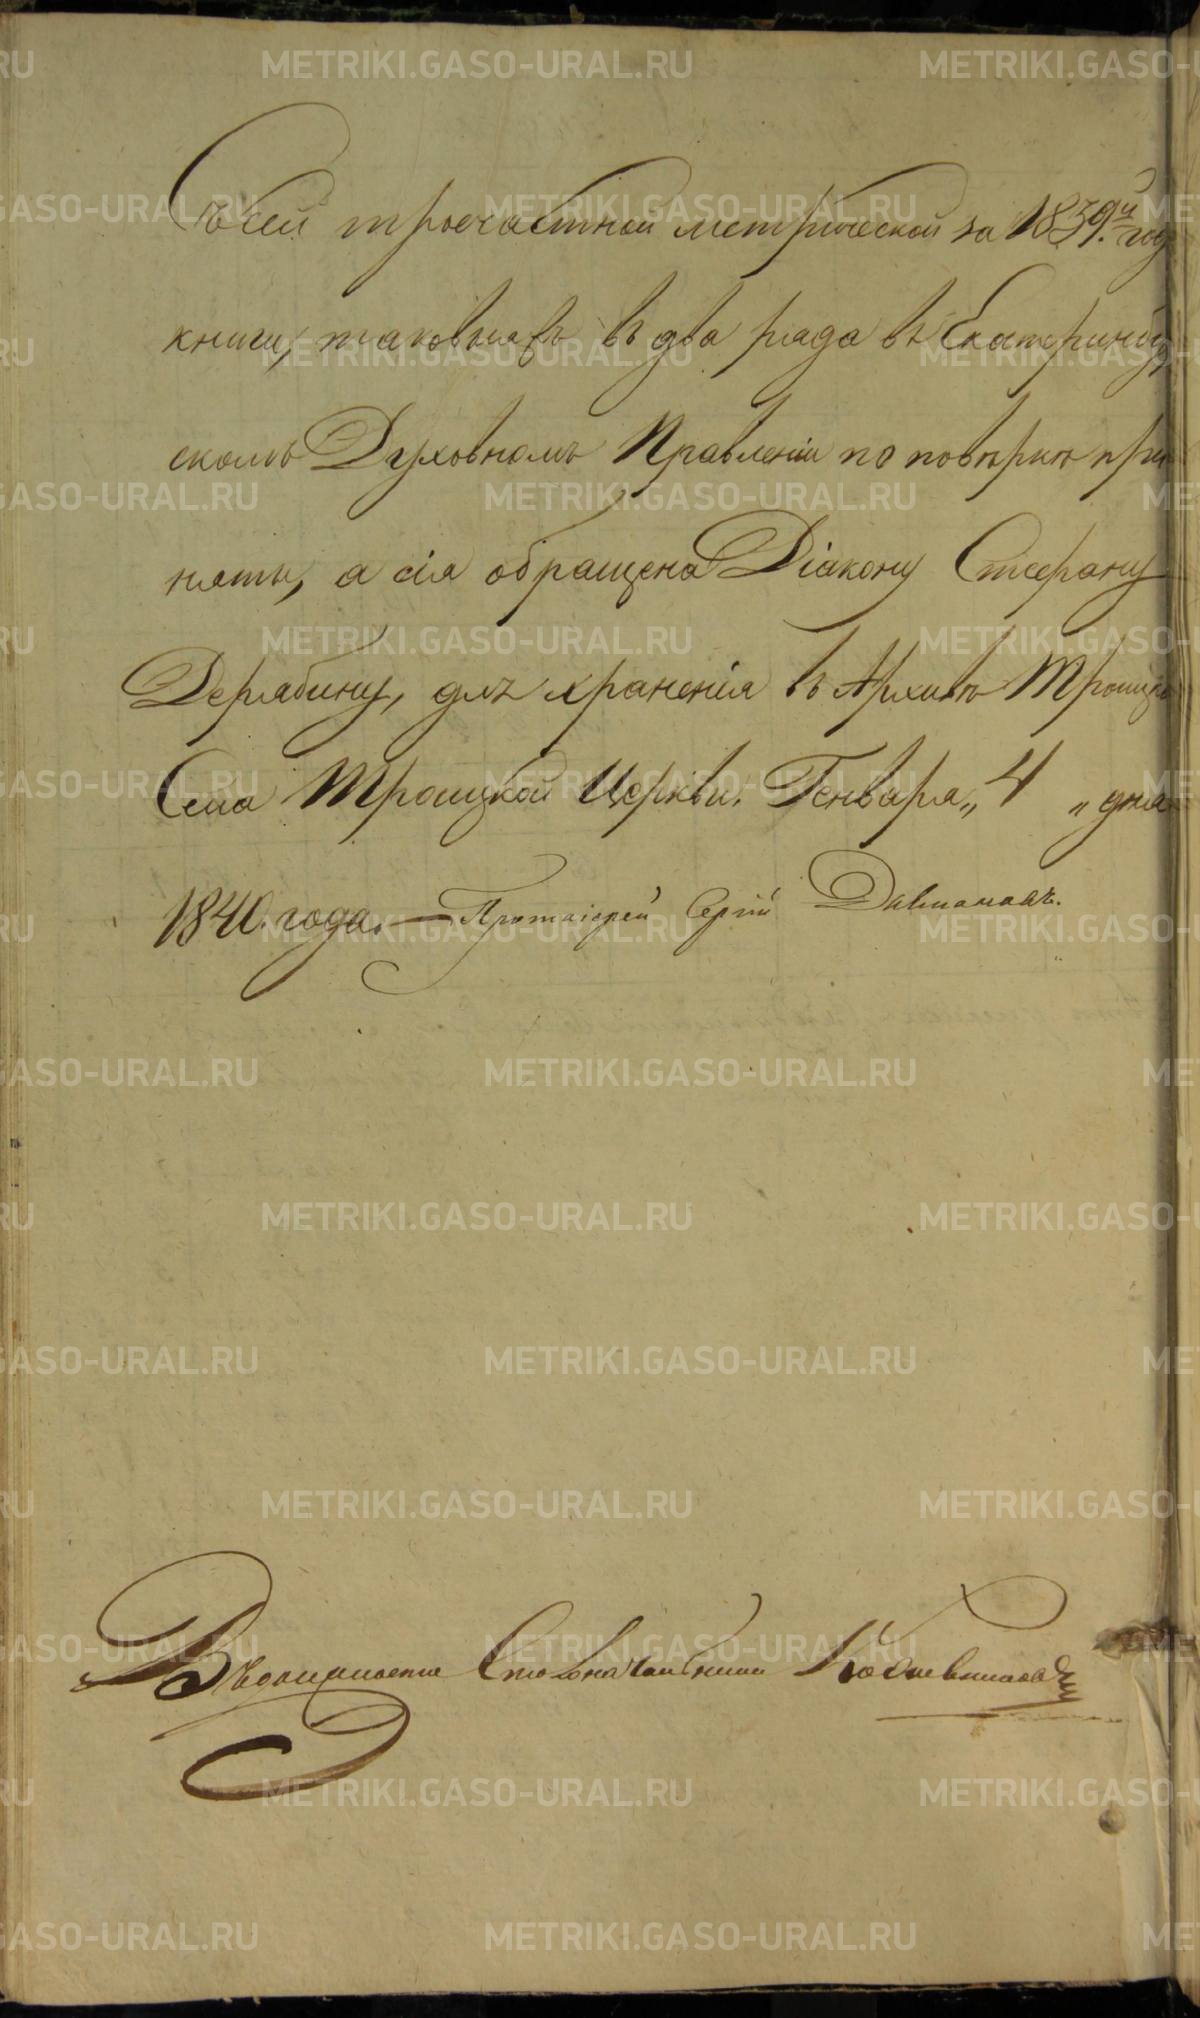 Съ сей троечастной метрической за 1839й год
книги, таковыяжъ въ два ряда въ Екатеринбург
скомъ Духовномъ Правленіи по повѣркѣ при
няты, а сія обращена Діакону Стефану
Дерябину, для храненія въ Архивѣ Троицко
Села Троицкой Церкви. Генваря „4 „ дня
1840. года. — Протоіерей Сергій
Вѣдомщикъ Столоначальникъ
METRIKI.GASO-URAL.RU